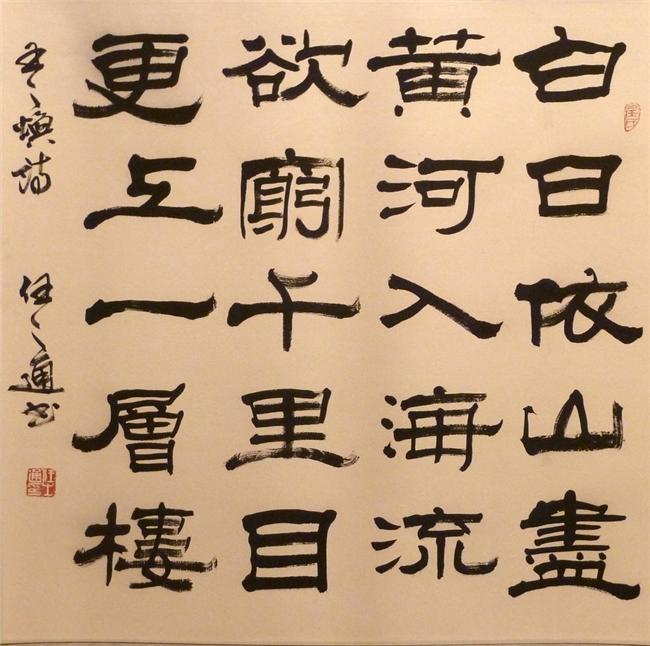 白日依山盡
黄河入海流
欲窮千里目
更上一層樓
王之渙詩 任之通书